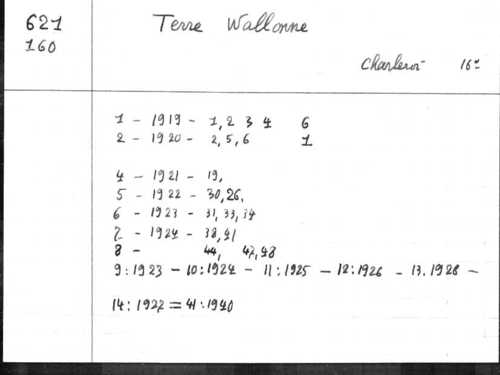 621 Terre Wallonne
160
Charleroi 16°
1 - 1919 - 1, 2 3 4 6
2 - 1920 - 2, 5, 6 1
4 - 1921 - 19,
5 - 1922 - 30, 26,
6 - 1923 - 31, 33, 34
7 - 1924 - 38, 41
8 - 44, 47, 48
9 : 1923 - 10 : 1924 - 11 : 1925 - 12 : 1926 - 13. 1928 -
14 : 1927 = 41 : 1940